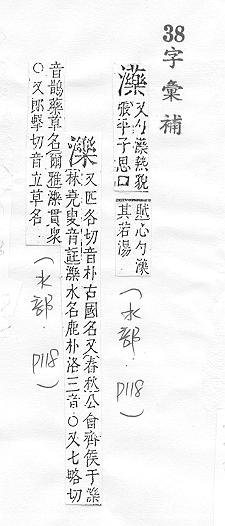 38字彙補
濼 又勺濼熱貌 張平子思囗
賦心勺濼 其若湯
(水部. p118)
濼 又匹各切音朴古國名又春秋公會齊侯于濼
林堯叟音註濼水名鹿朴洛三音○又七略切
音鵲藥草名爾雅濼貫衆
○又郎擊切音立草名
(水部. p118)